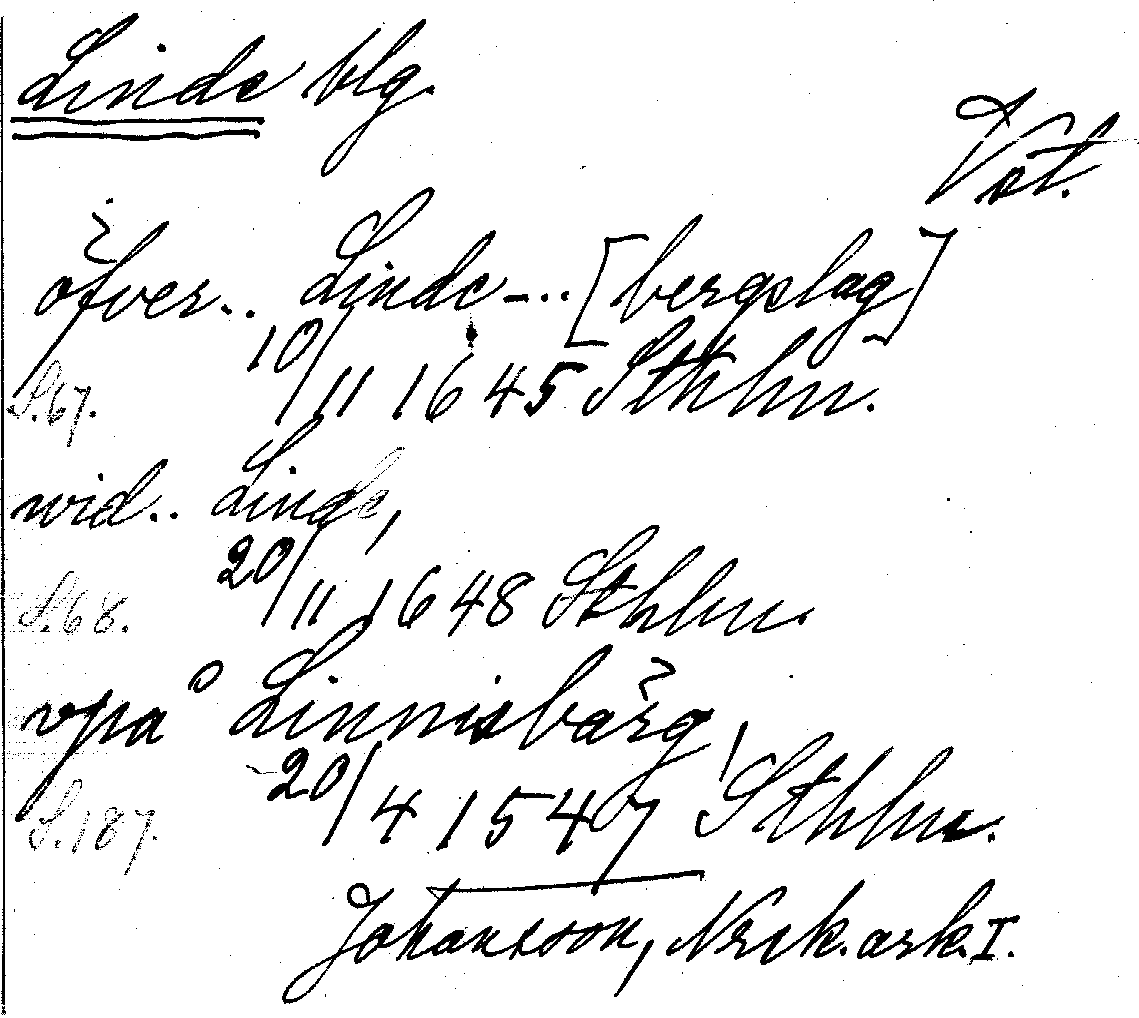 Linde blg.
Vst.
öfver.. Linde-..[bergslag]
10/11 1645 Sthlm.
S.67.
wid.. Linde,
20/11 1648 Sthlm.
S.68.
vpå Linnisbärg,
20/4 1547 Sthlm.
S.187.
Johansson, Norsk. ark. I.